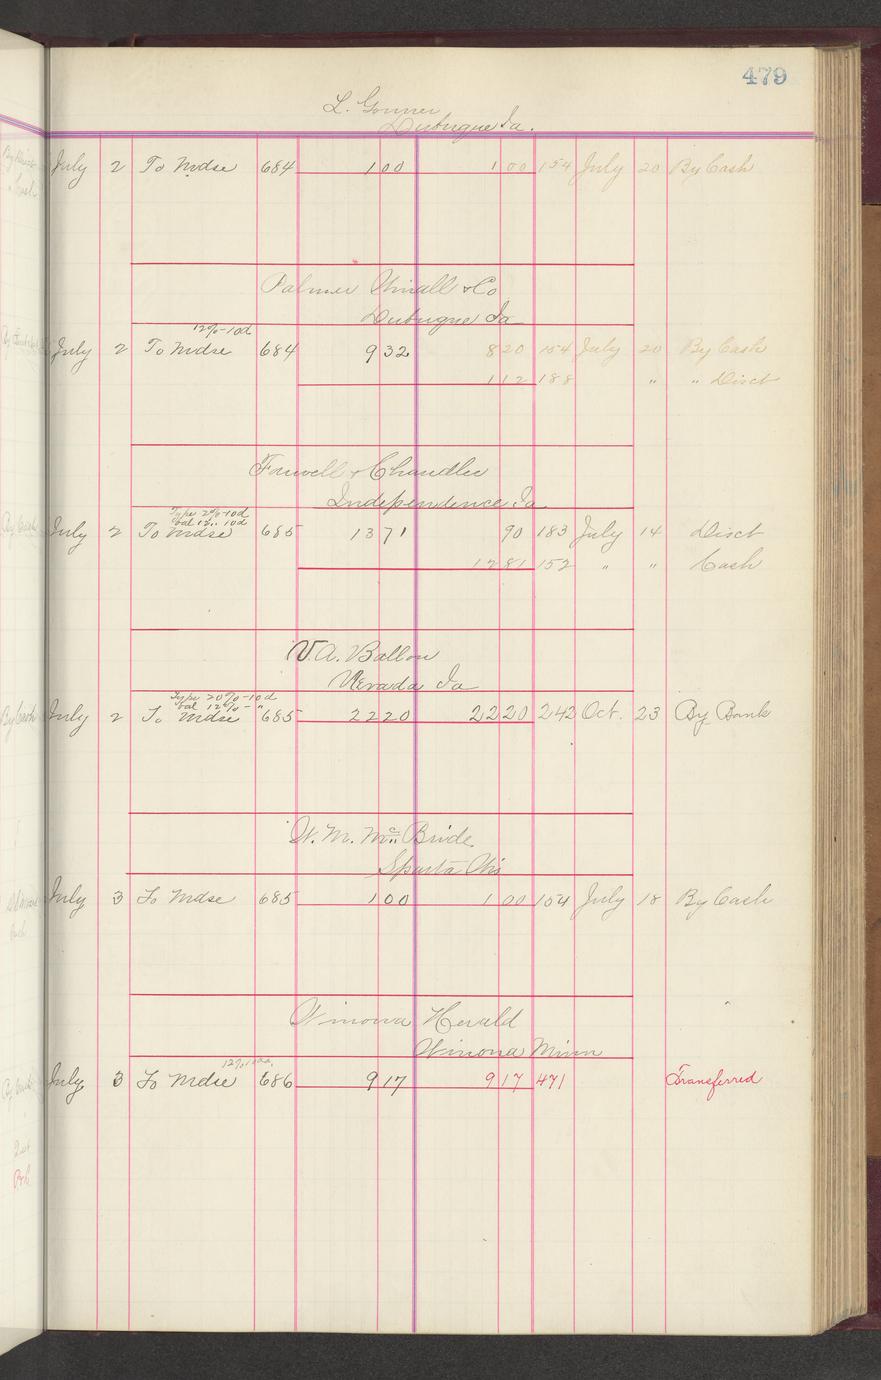 479
L. Gonner
Dubuque Ia.
July 2 To Mdse 684 1 00 1 00 154 July 20 By Cash
Palmer Winall & Co
Dubuque Ia
12%-10d
July 2 To Mdse 684 9 32 8 20 154 July 20 By Cash
1 12 188 " " Disct
& Chandler
Independence Ia
Type 2%-10d
bal 12" 10d
July 2 To Mdse 685 13 71 90 183 July 14 Disct
12 81 152 " " Cash
V. A. Ballou
Nevada Ia
Type 20%-10d
bal 12%- "
July 2 To Mdse 685 22 20 22 20 242 Oct. 23 By Bank
W. M. McBride
Sparta Wis
July 3 To Mdse 685 1 00 1 00 154 July 18 By Cash
Winona Herald
Winona Minn
July 3 To Mdse 686 9 17 9 17 471 Transferred